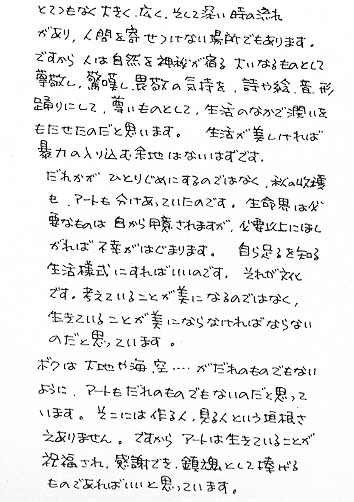 とてつもなく大きく、広く、そして深い時の流れ
があり、人間を寄せつけない場所でもあります。
ですから人は自然を神秘が宿る大いなるものとして
尊敬し、驚嘆し、畏敬の気持を、詩や絵、音、形
踊りにして、尊いものとして、生活のなかで潤いを
もたせたのだと思います。 生活が美しければ
暴力の入り込む余地はないはずです.
だれかがひとりじめにするのではなく、秋の収穫
も、アートも分けあっていたのです。生命界は必
要なものは自から用意されますが、必要以上にほし
がれば不幸がはじまります。 自ら足るを知る
生活様式にすればいいのです。それが文化
です。考えていることが美になるのではなく、
生きていることが美にならなければならない
のだと思っています。
ボクは大地や海、空‥‥がだれのものでもない
ように、アートもだれのものでもないのだと思って
います。そこには作る人、見る人という垣根さ
えありません。ですからアートは生きていることが
祝福され、感謝でき、鎮魂として捧げる
ものであればいいと思っています。